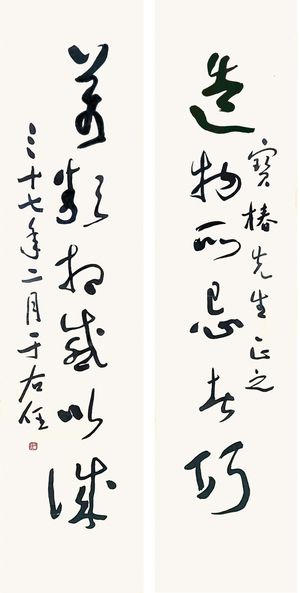 造物所忌者巧
寶椿先生正之
萬類相感以誠
三十七年二月于右任